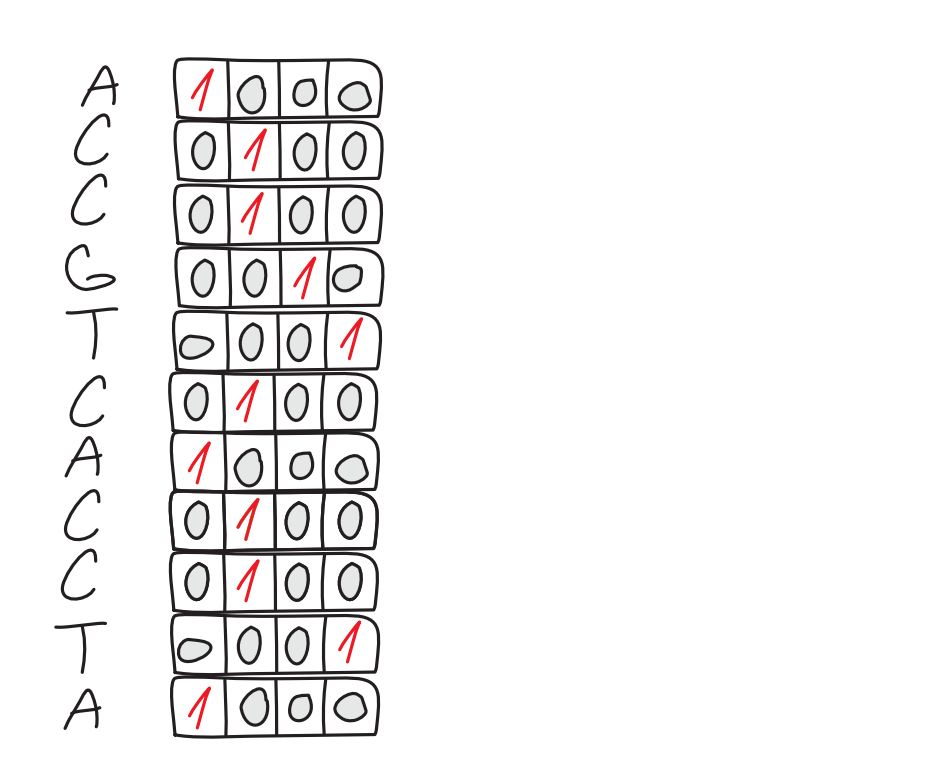 A 1 0 0 0
C 0 1 0 0
C 0 1 0 0
G 0 0 1 0
T 0 0 0 1
C 0 1 0 0
A 1 0 0 0
C 0 1 0 0
C 0 1 0 0
T 0 0 0 1
A 1 0 0 0